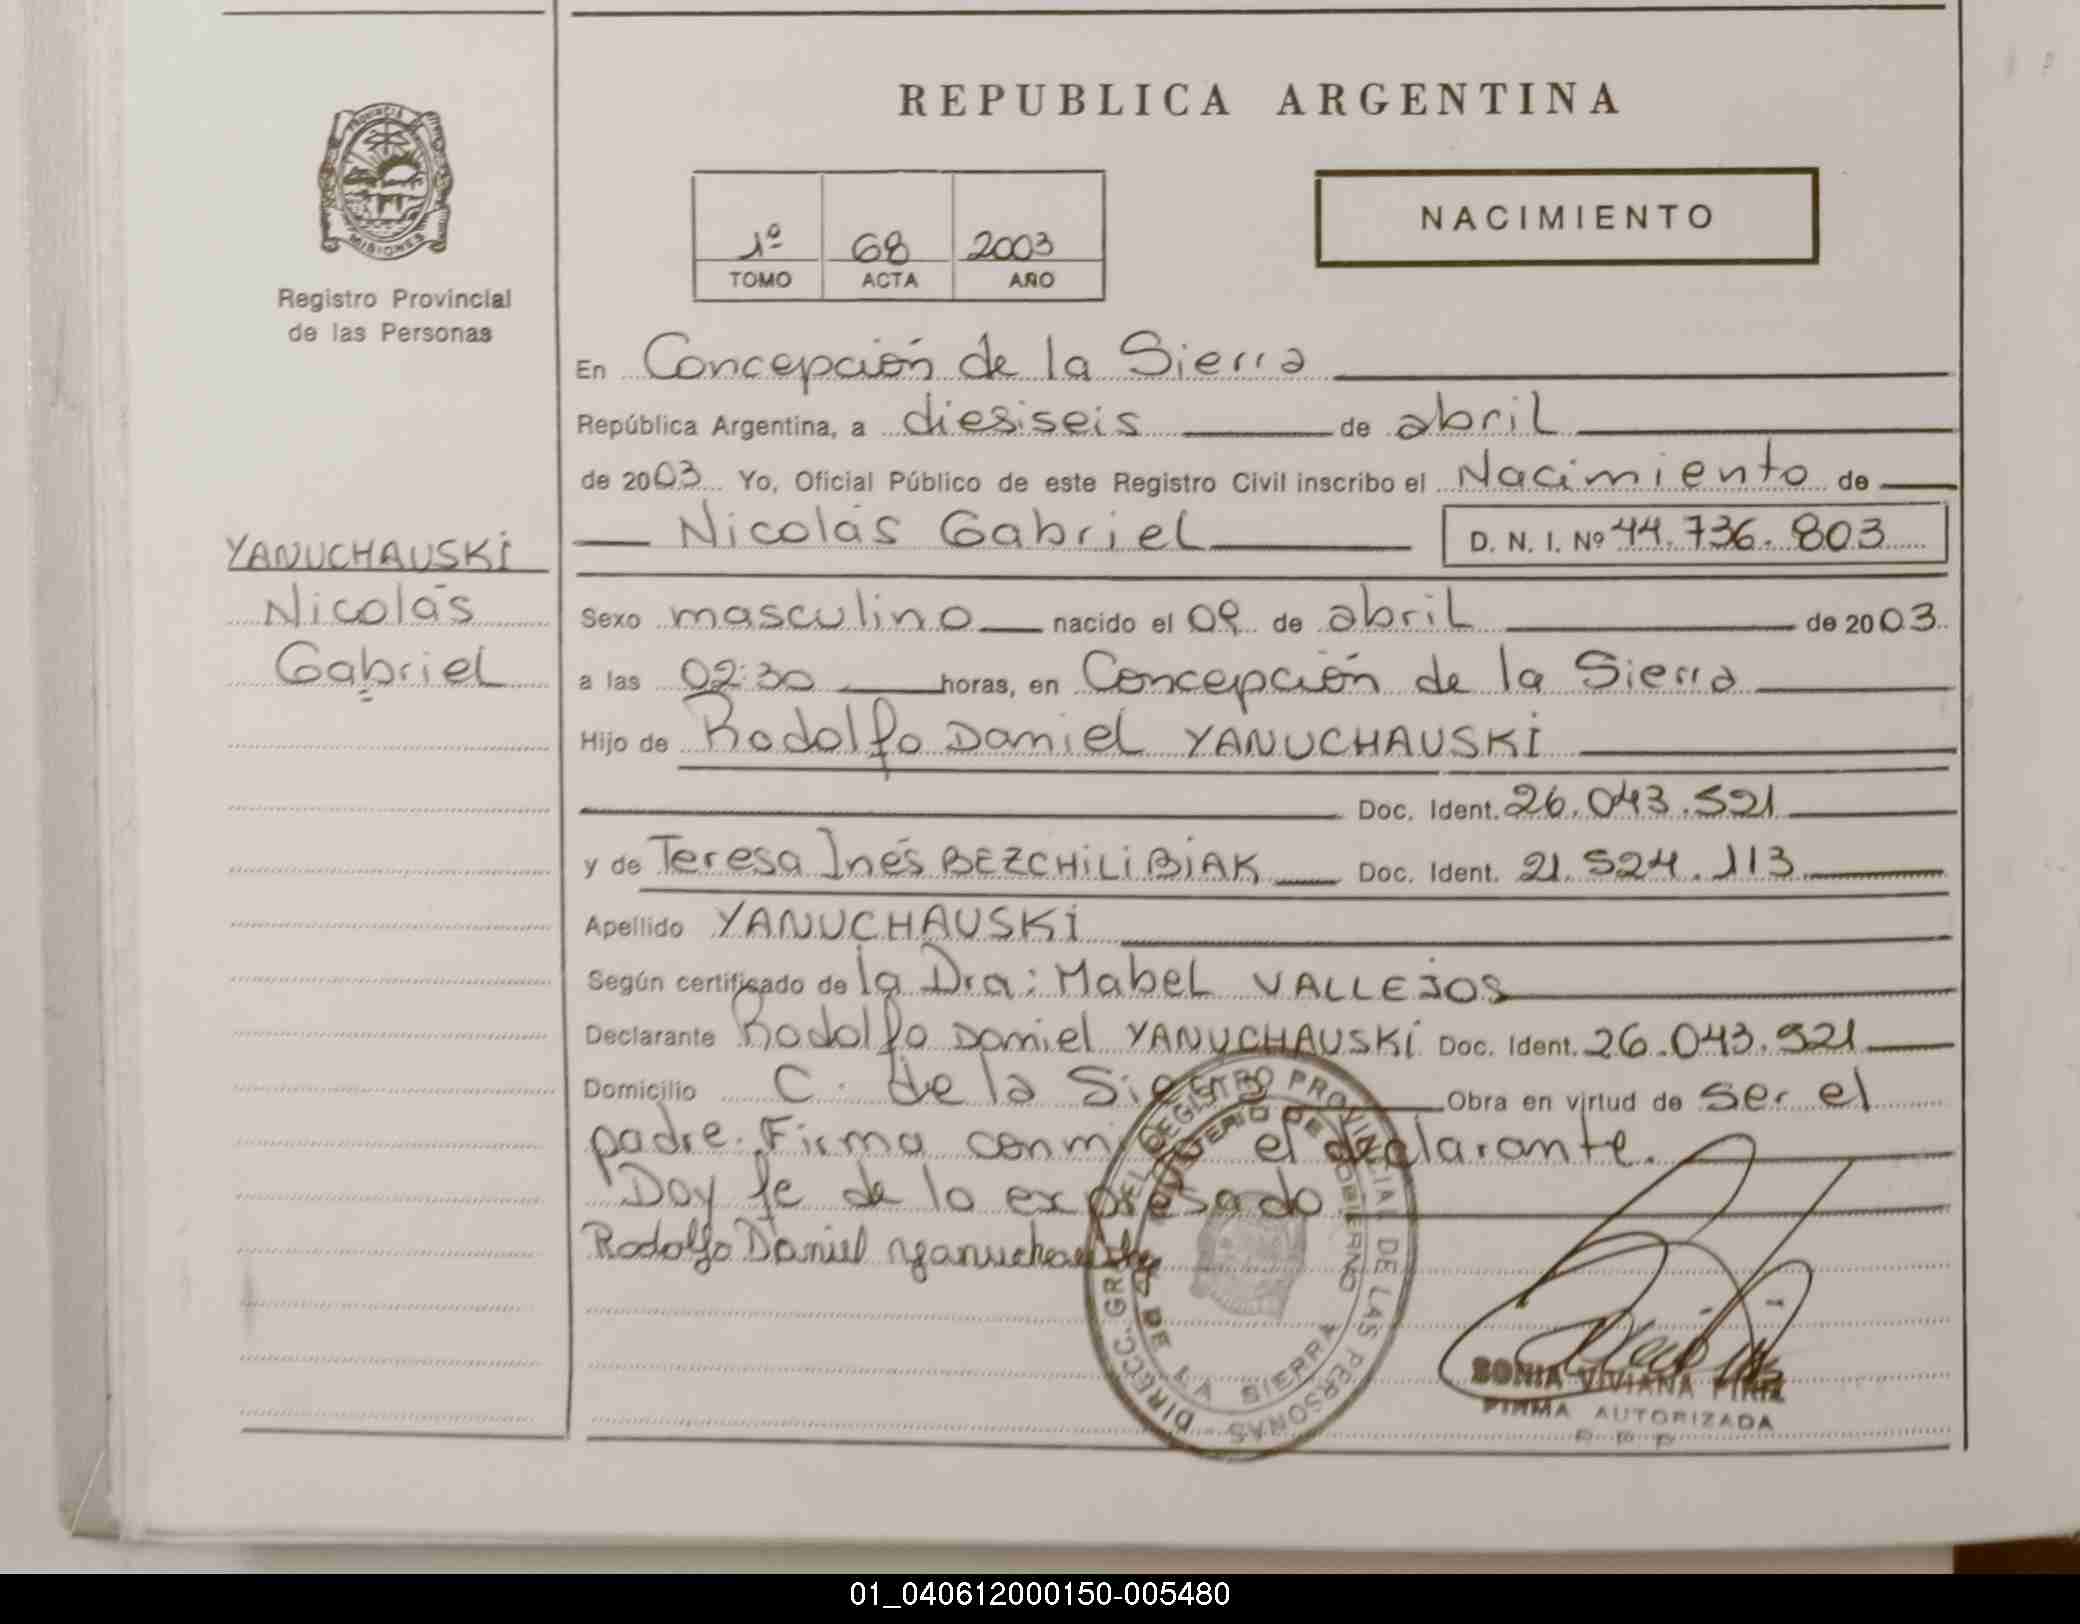 REPUBLICA ARGENTINA
PROVINCIA
MISIONES
Registro Provincial
de las Personas
1º 68 2003
TOMO ACTA AÑO
NACIMIENTO
En Concepción de la Sierra
República Argentina, a diesiseis de abril
de 2003 Yo, Oficial Público de este Registro Civil inscribo el Nacimiento de
Nicolás Gabriel D. N. I. Nº 44.736.803
YANUCHAUSKI
Nicolás
Gabriel
Sexo masculino nacido el 09 de abril de 2003
a las 02:30 horas, en Concepción de la Sierra
Hijo de Rodolfo Daniel YANUCHAUSKI
Doc. Ident. 26.043.521
y de Teresa Inés BEZCHILIBIAK Doc. Ident. 21.524.113
Apellido YANUCHAUSKI
Según certificado de la Dra: Mabel VALLEJOS
Declarante Rodolfo Daniel YANUCHAUSKI Doc. Ident. 26.043.521
Domicilio C. de la Sierra Obra en virtud de ser el
padre. Firma conmigo el declarante.
Doy fe de lo expresado
Rodolfo Daniel
DIRECC. GRAL. DEL REGISTRO PROVINCIAL DE LAS PERSONAS
MINISTERIO DE GOBIERNO
DE LA SIERRA
SONIA VIVIANA PIRIZ
FIRMA AUTORIZADA
R P P
01_040612000150-005480